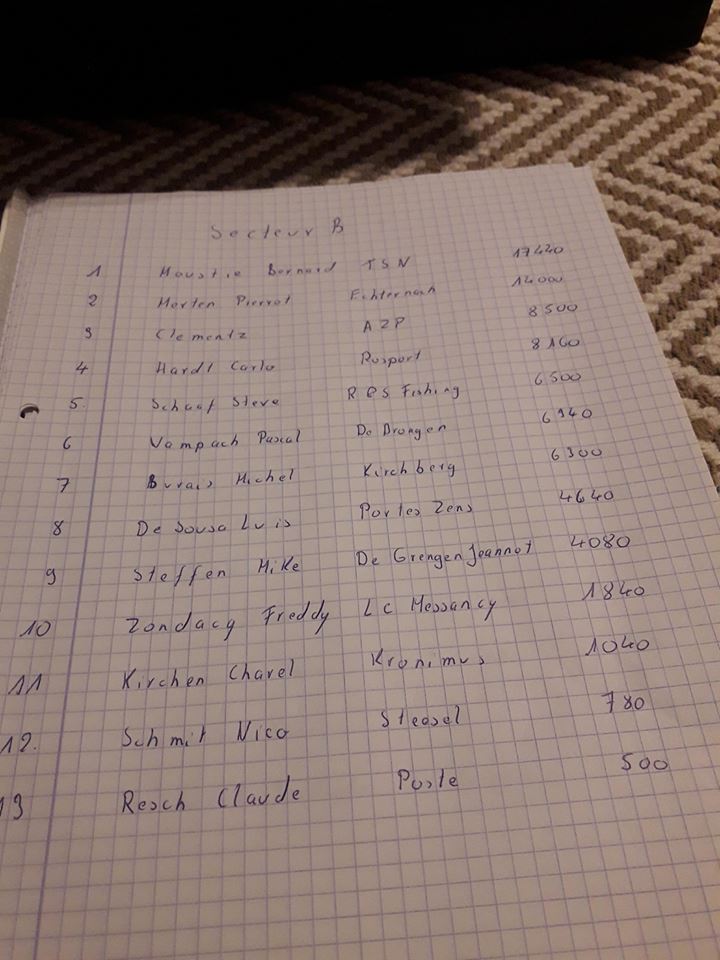 Secteur B
1 Moustie Bernard TSN 17420
2 Morten Pierrot Echternach 14000
3 Clementz AZP 8500
4 Hardt Carlo Rosport 8160
5. Schaaf Steve RPS Fishing 6500
6 Vampach Pascal De Brongen 6340
7 Michel Kirchberg 6300
8 De Sousa Luis Portes Zens 4640
9 Steffen Mike De Grengen Jeannot 4080
10 Zondacq Freddy LC Messancy 1840
11 Kirchen Charel Kronimus 1040
12. Schmit Nico Steesel 780
13 Resch Claude Poste 500